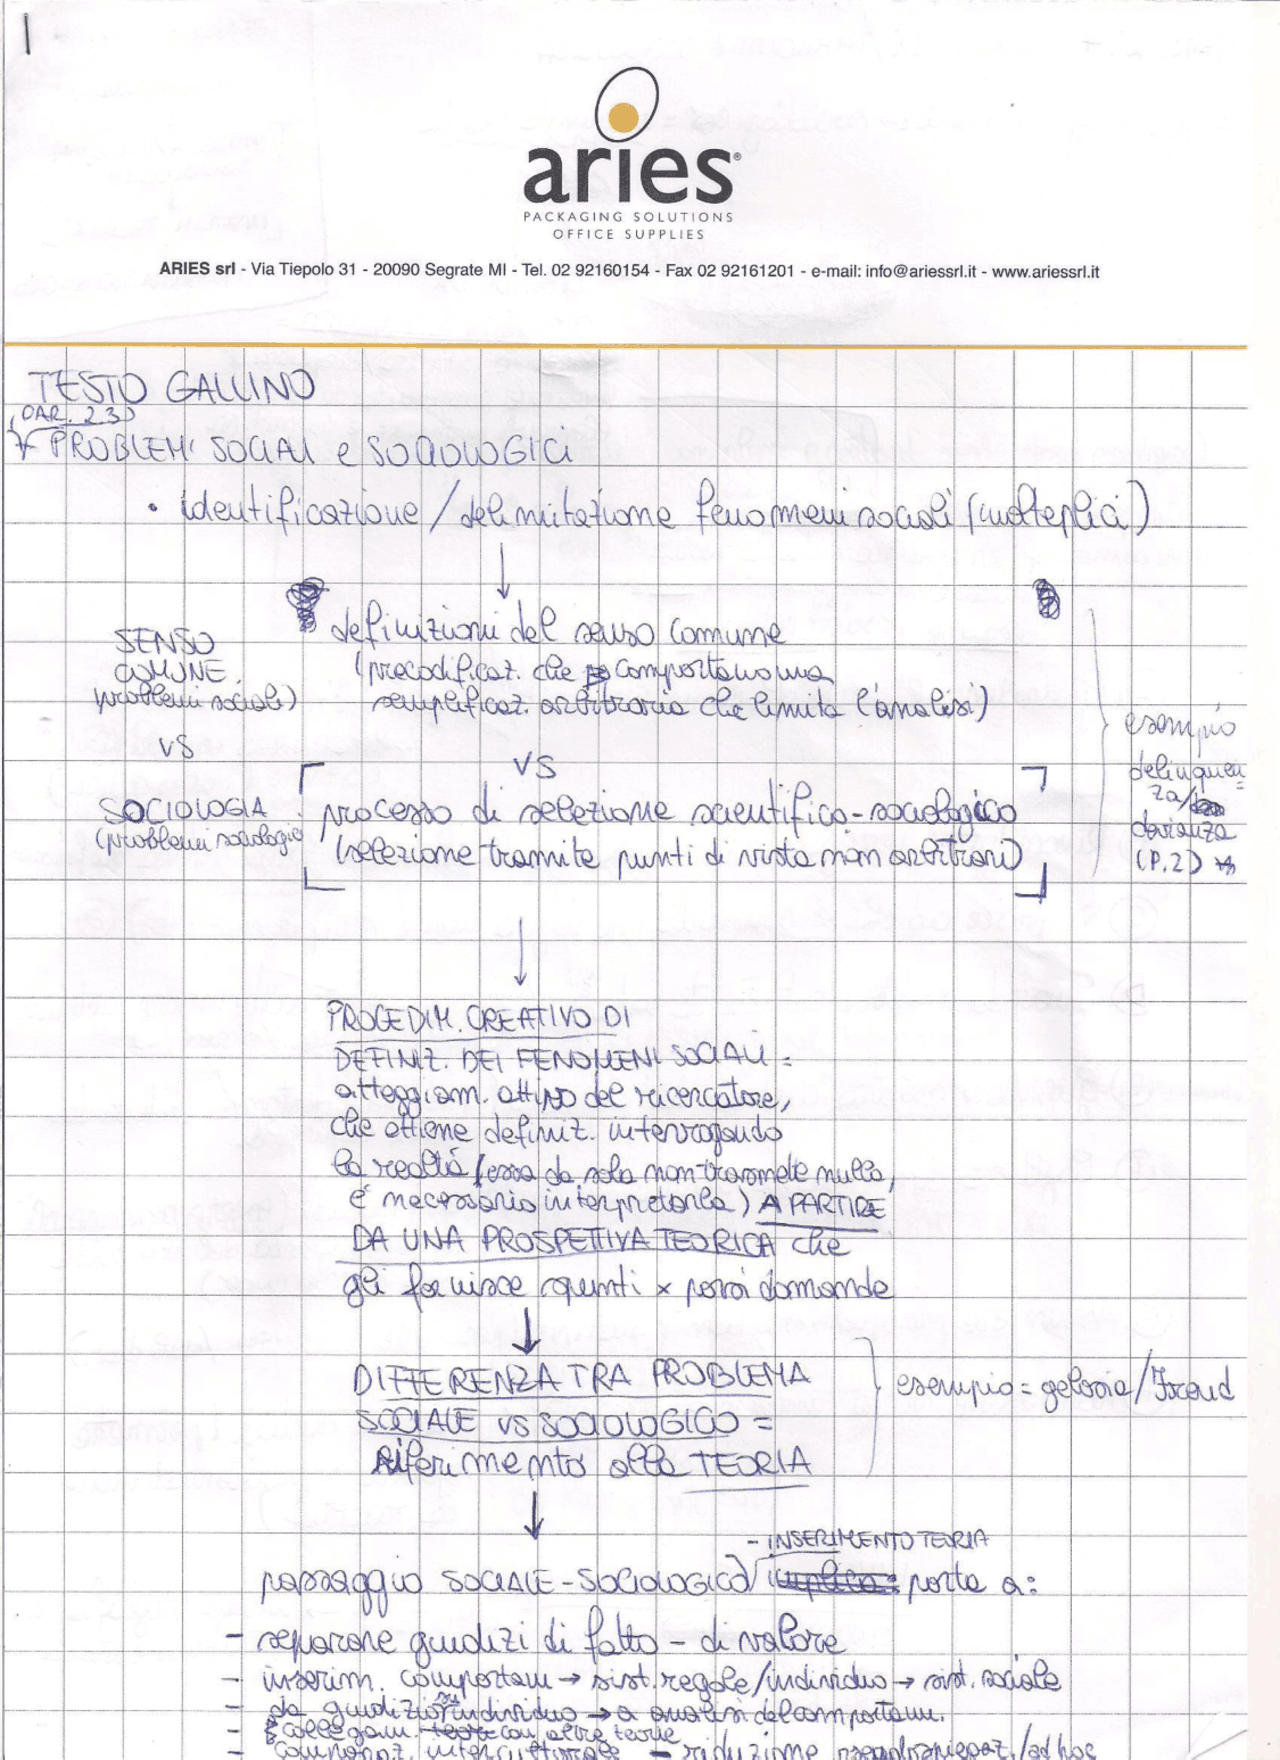 aries®
PACKAGING SOLUTIONS
OFFICE SUPPLIES
ARIES srl - Via Tiepolo 31 - 20090 Segrate MI - Tel. 02 92160154 - Fax 02 92161201 - e-mail: info@ariessrl.it - www.ariessrl.it
TESTO GALLINO
(PAR. 2.3)
PROBLEMI SOCIALI e SOCIOLOGICI
• identificazione/delimitazione fenomeni sociali (molteplici)
↓
SENSO
COMUNE
(problemi sociali)
vs
SOCIOLOGIA
(problemi sociologici)
definizioni del senso comune
(precodificaz. che comportano una
semplificaz. arbitraria che limita l'analisi)
VS
processo di selezione scientifico-sociologico
(selezione tramite punti di vista non arbitrari)
esempio
delinquen
za/
devianza
(P.2)
↓
PROCEDIM. CREATIVO DI
DEFINIZ. DEI FENOMENI SOCIALI =
atteggiam. attivo del ricercatore,
che ottiene definiz. interrogando
la realtà (essa da sola non trasmette nulla,
è necessario interpretarla) A PARTIRE
DA UNA PROSPETTIVA TEORICA che
gli fornisce spunti x porsi domande
↓
DIFFERENZA TRA PROBLEMA
SOCIALE VS SOCIOLOGICO =
Riferimento alla TEORIA
esempio = gelosia/Freud
↓
- INSERIMENTO TEORIA
passaggio SOCIALE-SOCIOLOGICO porta a:
- separare giudizi di fatto - di valore
- inserim. comportam → sist. regole/individuo → sist. sociale
- da giudizio su individuo → a analisi del comportam.
- collegam. con altre teorie
- comparaz. interculturale - riduzione /ad hoc